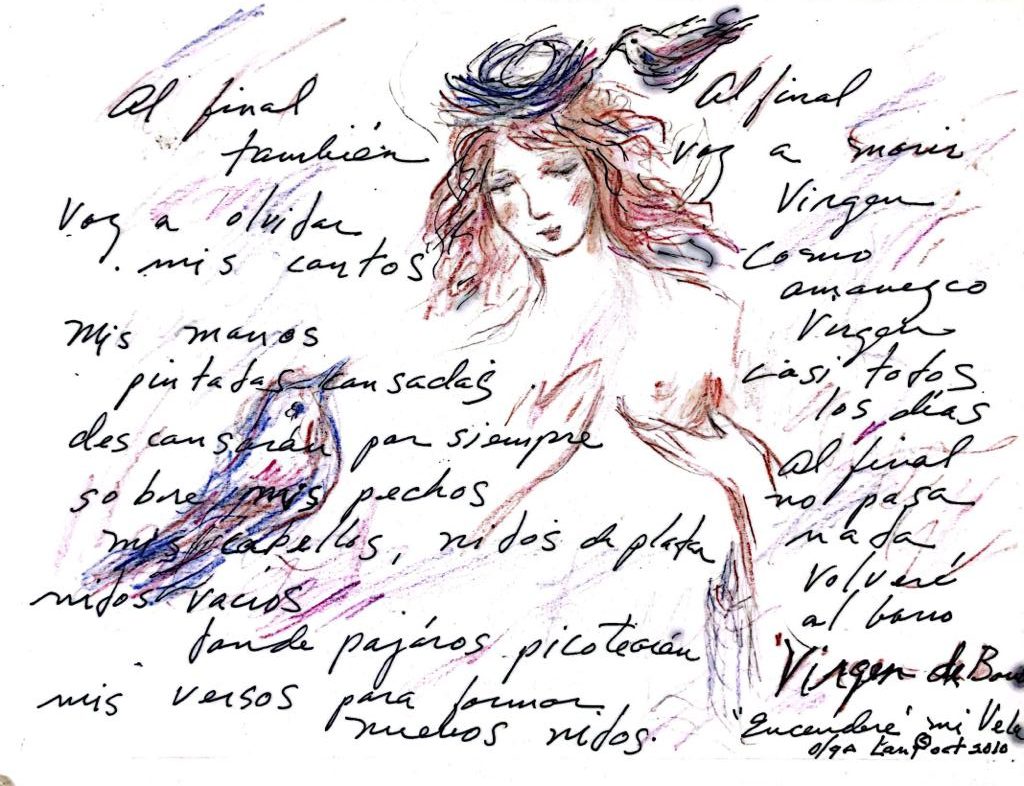 Al final
también
Voy a olvidar
mis cantos
Mis manos
pintadas cansadas
descansarán por siempre
sobre mis pechos
mis cabellos, nidos de plata
nidos vacios
donde pajáros picotearán
mis versos para formar
nuevos nidos.
Al final
voy a morir
Virgen
Como
amanezco
Virgen
casi todos
los días
Al final
no pasa
nada
Volveré
al barro
"Virgen de Barr
"Encenderé mi Vela
Olga © oct 2010